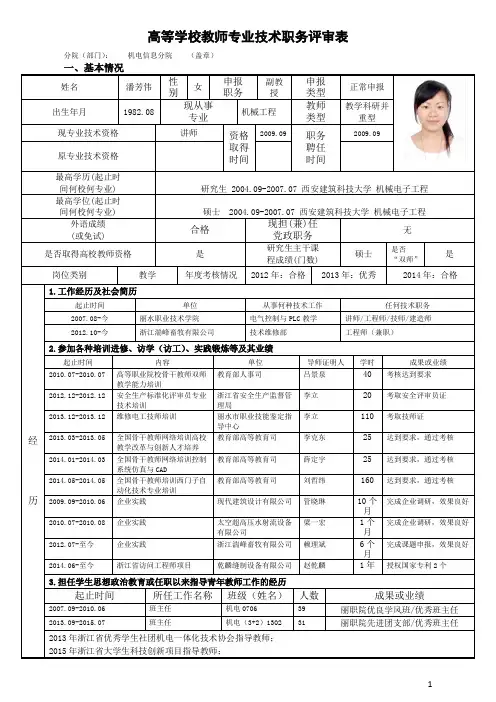 高等学校教师专业技术职务评审表
分院（部门）： 机电信息分院 （盖章）
一、基本情况
姓名 潘芳伟 性别 女 申报职务 副教授 申报类型 正常申报
出生年月 1982.08 现从事专业 机械工程 教师类型 教学科研并重型
现专业技术资格 讲师 资格取得时间 2009.09 职务聘任时间 2009.09
原专业技术资格
最高学历(起止时间何校何专业) 研究生 2004.09-2007.07 西安建筑科技大学 机械电子工程
最高学位(起止时间何校何专业) 硕士 2004.09-2007.07 西安建筑科技大学 机械电子工程
外语成绩(或免试) 合格 现担(兼)任党政职务 无
是否取得高校教师资格 是 研究生主干课程成绩(门数) 硕士 是否“双师” 是
岗位类别 教学 年度考核情况 2012年：合格 2013年：优秀 2014年：合格
经历
1.工作经历及社会简历
起止时间 单位 从事何种技术工作 任何技术职务
2007.08-今 丽水职业技术学院 电气控制与PLC教学 讲师/工程师/技师/建造师
2012.10-今 浙江湍峰畜牧有限公司 技术维修部 工程师（兼职）
2.参加各种培训进修、访学（访工）、实践锻炼等及其业绩
起止时间 内容 单位 导师证明人 学时 成果或业绩
2010.07-2010.07 高等职业院校骨干教师双师教学能力培训 教育部人事司 吕景泉 40 考核达到要求
2012.12-2012.12 安全生产标准化评审员专业技术培训 浙江省安全生产监督管理局 李立 20 考取安全评审员证
2013.12-2013.12 维修电工技师培训 丽水市职业技能鉴定指导中心 李立 110 考取技师证
2013.03-2013.05 全国骨干教师网络培训高校教学改革与创新人才培养 教育部高等教育司 李克东 25 达到要求，通过考核
2014.01-2014.03 全国骨干教师网络培训控制系统仿真与CAD 教育部高等教育司 薛定宇 25 达到要求，通过考核
2014.05-2014.05 全国骨干教师培训西门子自动化技术专业培训 教育部高等教育司 刘哲纬 160 达到要求，通过考核
2009.09-2010.06 企业实践 现代建筑设计有限公司 管晓琳 10个月 完成企业调研，效果良好
2010.07-2010.08 企业实践 太空超高压水射流设备有限公司 梁一宏 1个月 完成企业调研，效果良好
2012.07-至今 企业实践 浙江湍峰畜牧有限公司 赖理斌 6个月 完成课题申报，效果良好
2014.06-至今 浙江省访问工程师项目 乾麟缝制设备有限公司 赵乾麟 1年 授权国家专利2个
3.担任学生思想政治教育或任职以来指导青年教师工作的经历
起止时间 所任工作名称 班级（姓名） 人数 成果或业绩
2007.09-2010.06 班主任 机电0706 39 丽职院优良学风班/优秀班主任
2013.09-2015.07 班主任 机电（3+2）1302 31 丽职院先进团支部/优秀班主任
2013年浙江省优秀学生社团机电一体化技术协会指导教师；
2015年浙江省大学生科技创新项目指导教师；
1